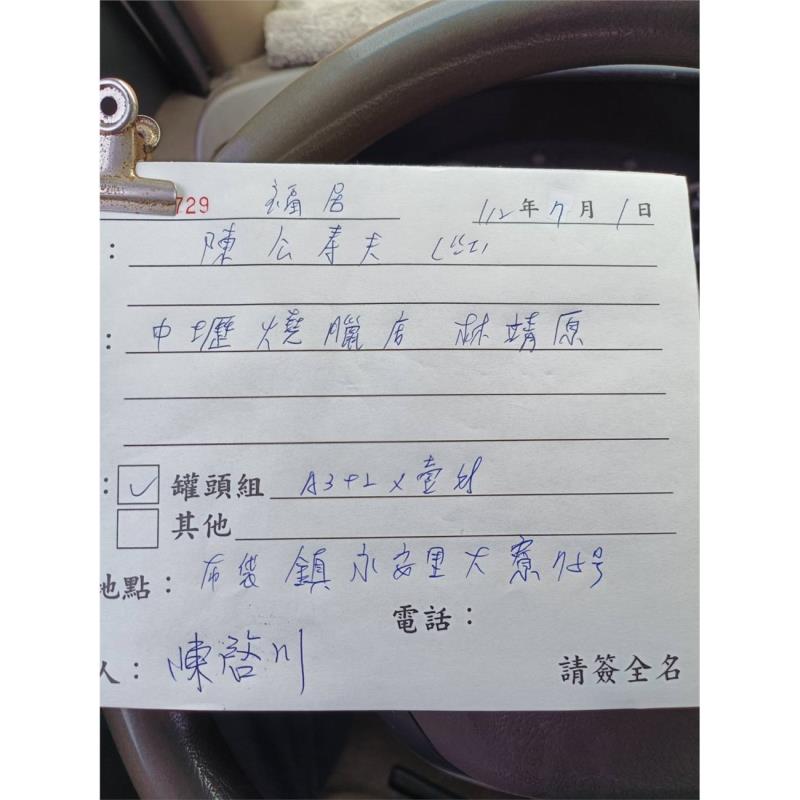 729 福居 112年7月1日
: 陳公寿夫
: 中壢燒臘店 林靖原
: ✓ 罐頭組 A3+2 x 壹對
其他
地點： 布袋鎮永安里大寮75号
電話：
人： 陳啓川 請簽全名